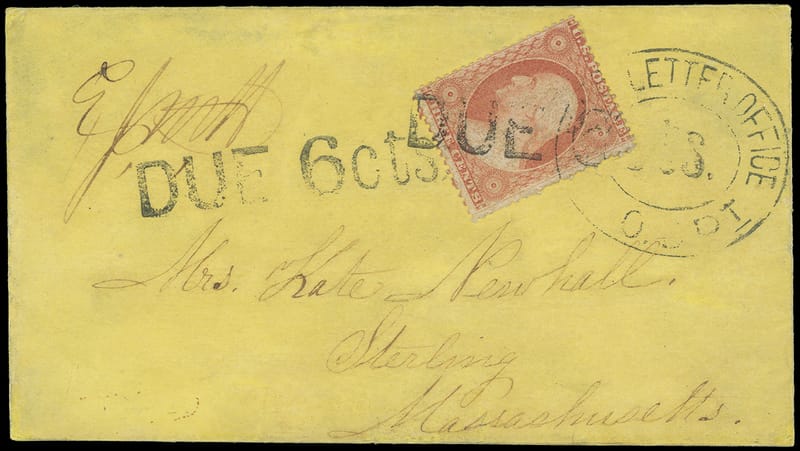 DUE 6 cts.
DUE
U.S. POSTAGE
LETTER OFFICE
Mrs. Kate Newhall.
Sterling
Massachusetts.